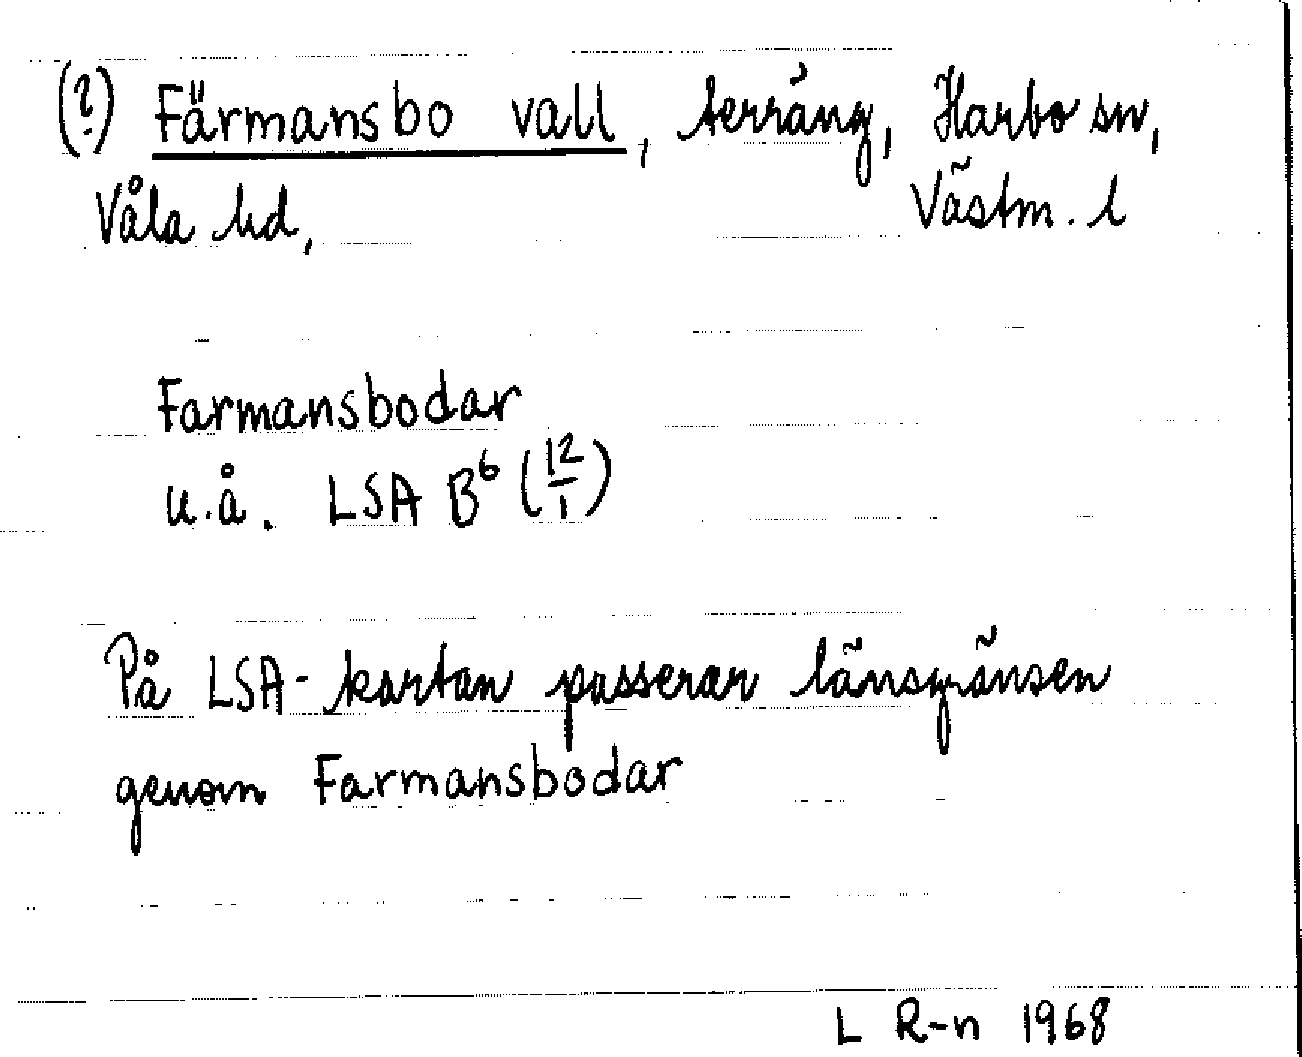 (?) Färmansbo vall, terräng, Harbo sn,
Våla hd, Västm. l
Farmansbodar
u.å. LSA B⁶ (12/1)
På LSA-kartan passerar länsgränsen
genom Farmansbodar
L R-n 1968